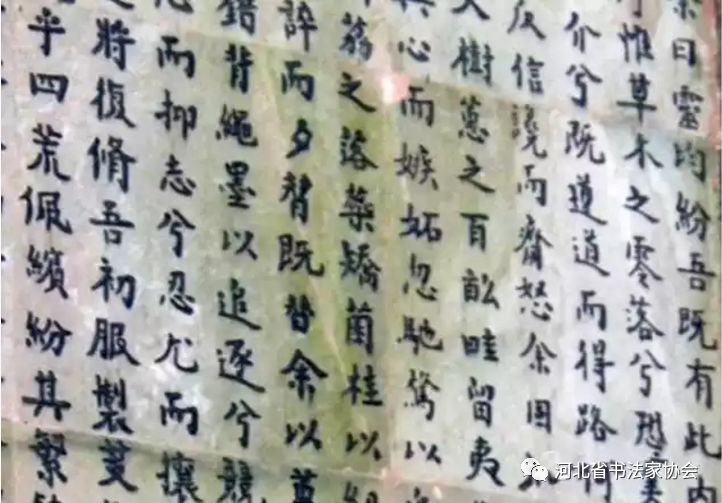 曰靈均紛吾既有此內
惟草木之零落兮恐
介兮既遵道而得路
反信讒而齌怒余固
樹蕙之百畝畦留夷
心而嫉妒忽馳騖以
荔之落蘂矯菌桂以
誶而夕替既替余以
錯背繩墨以追逐兮競
而抑志兮忍尤而攘
將復修吾初服製芰
乎四荒佩繽紛其繁
河北省书法家协会